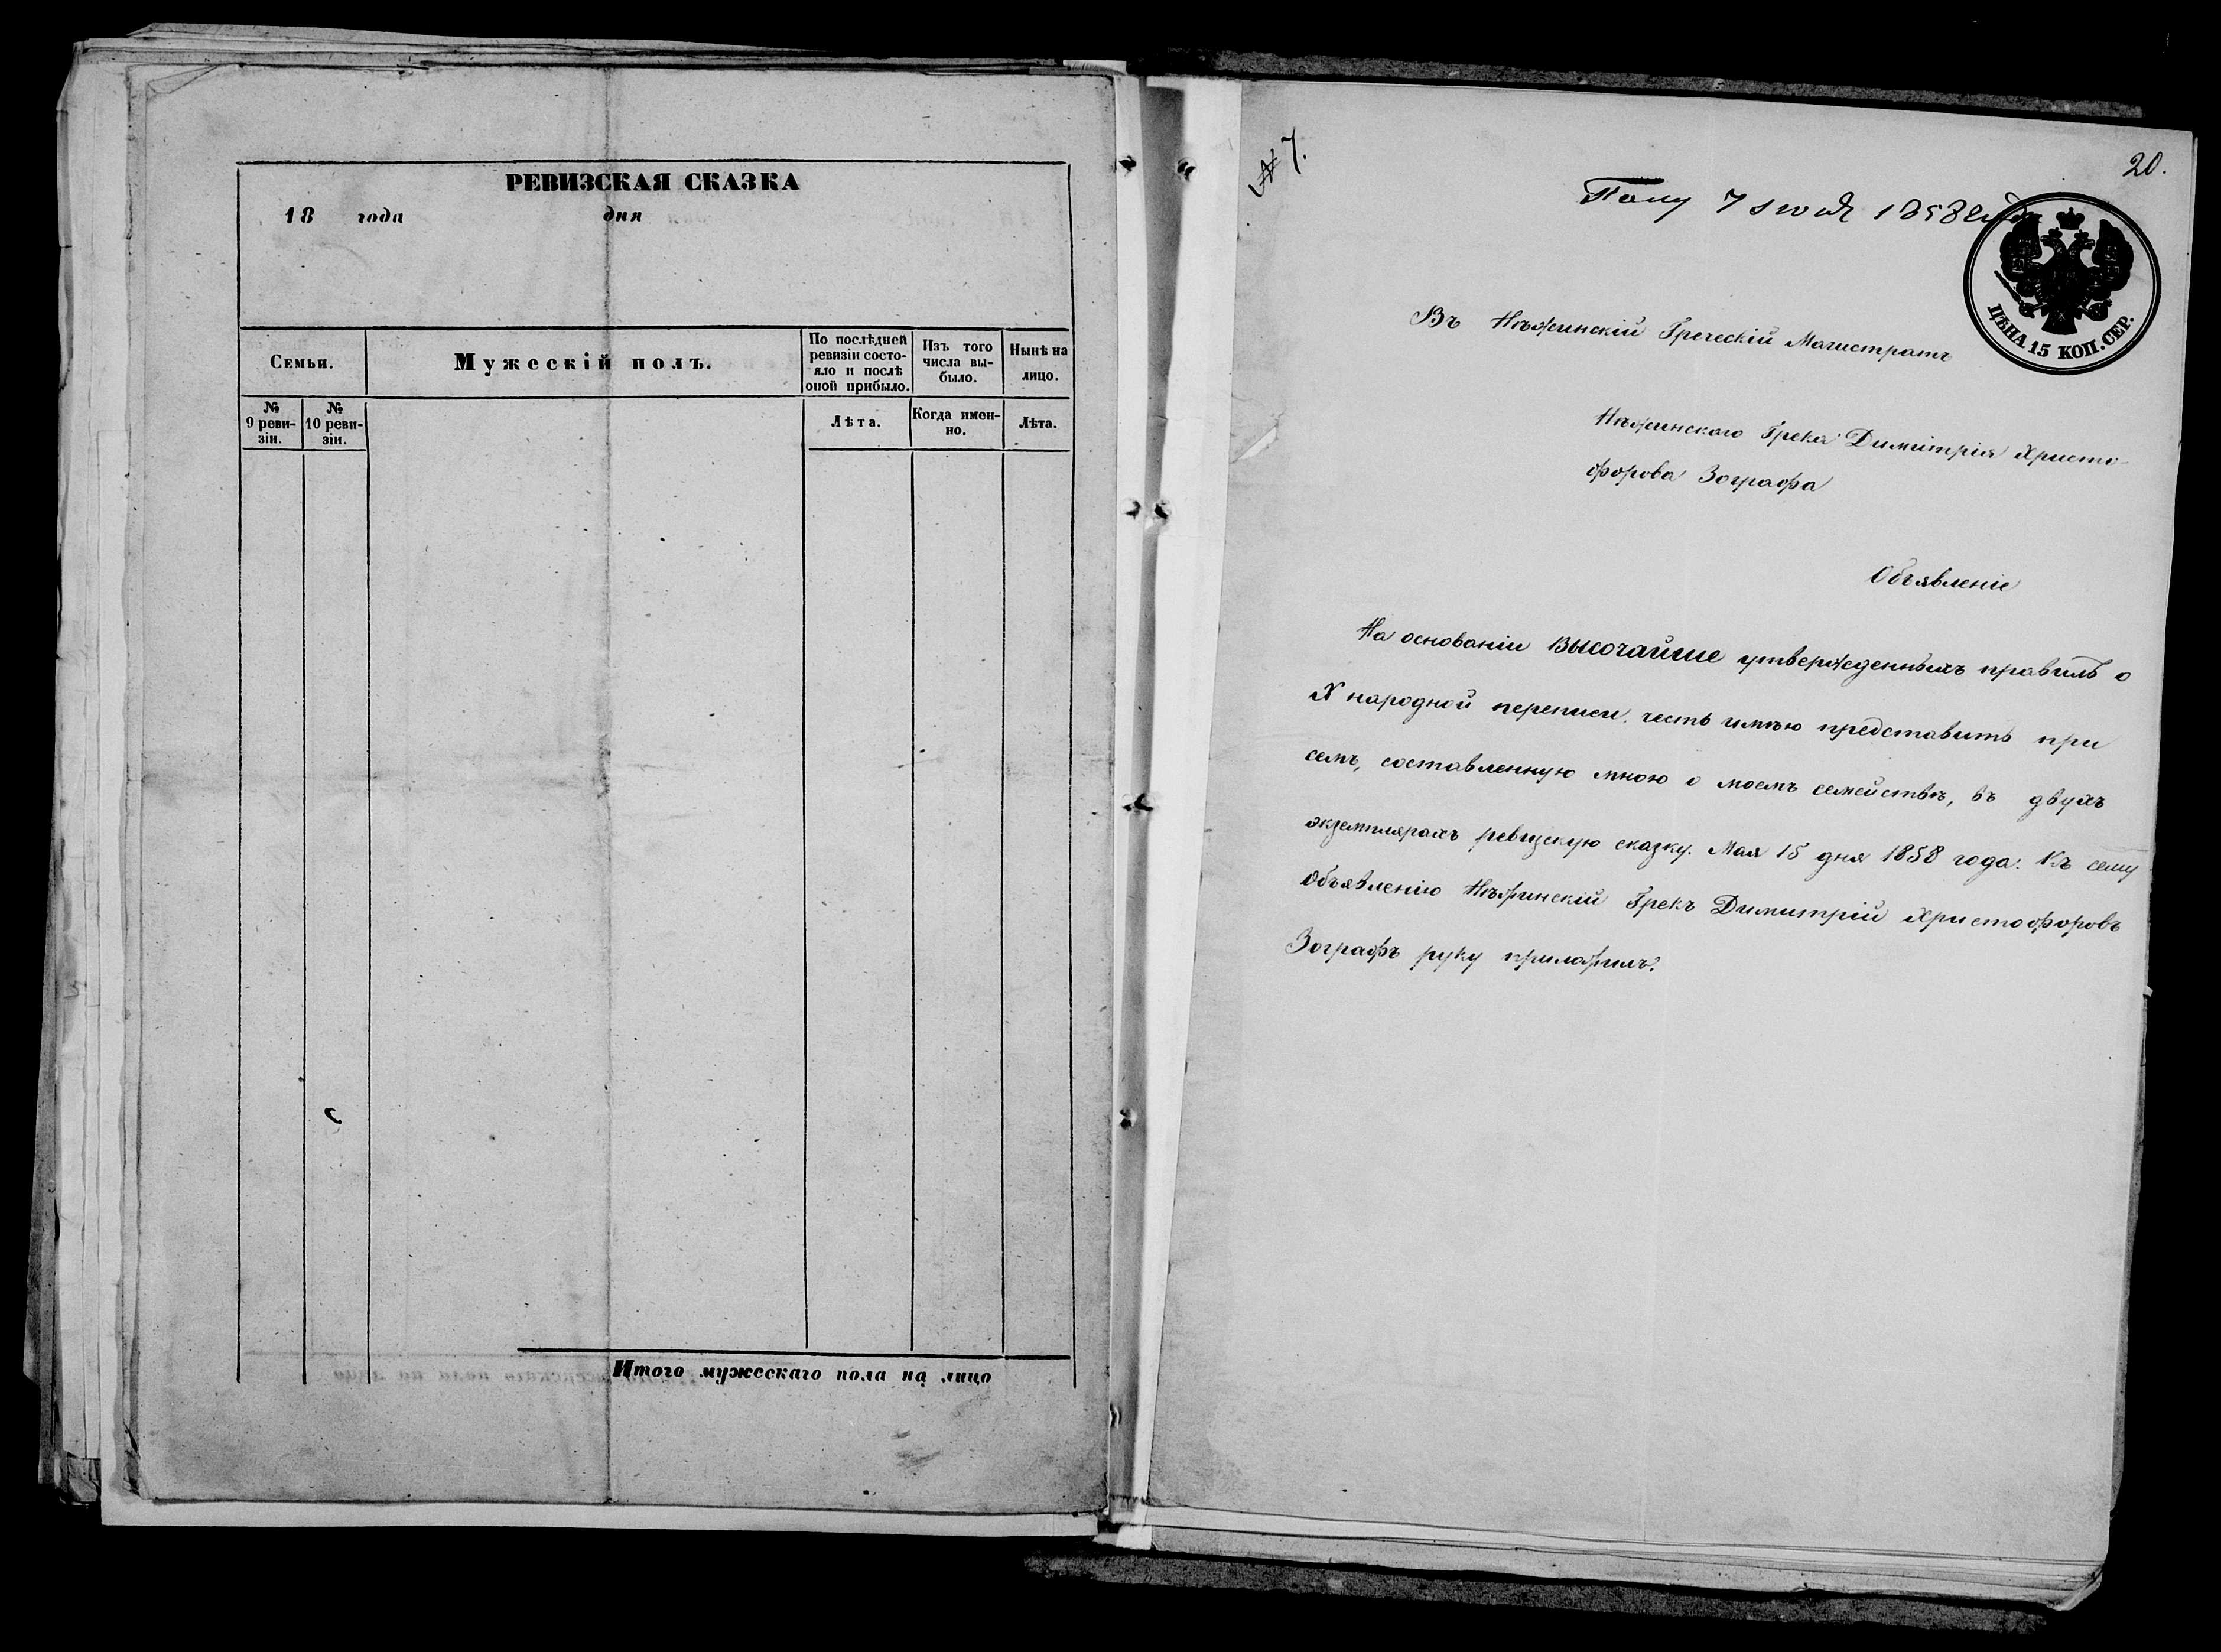 РЕВИЗСКАЯ СКАЗКА
18 года дня
Семьи.
Мужескій полъ.
По послѣдней
ревизіи состо-
яло и послѣ
оной прибыло.
Изъ того
числа вы-
было.
Нынѣ на
лицо.
№
9 реви-
зіи.
№
10 реви-
зіи.
Лѣта.
Когда имен-
но.
Лѣта.
Итого мужескаго пола на лицо
№ 7.
20.
Полу 7 1858
ЦѢНА 15 КОП. СЕР.
Въ Нѣжинскій Греческій Магистратъ
Нѣжинскаго Грека Димитрія Христо-
форова Зографа
Объявленіе
На основаніи ВЫСОЧАЙШЕ утвержденныхъ правилъ о
X народной переписи, честь имѣю представить при
семъ, составленную мною о моемъ семействѣ, въ двухъ
экземплярахъ ревизскую сказку. Мая 15 дня 1858 года. Къ сему
объявленію Нѣжинскій Грекъ Димитрій Христофоровъ
Зографъ руку приложилъ.